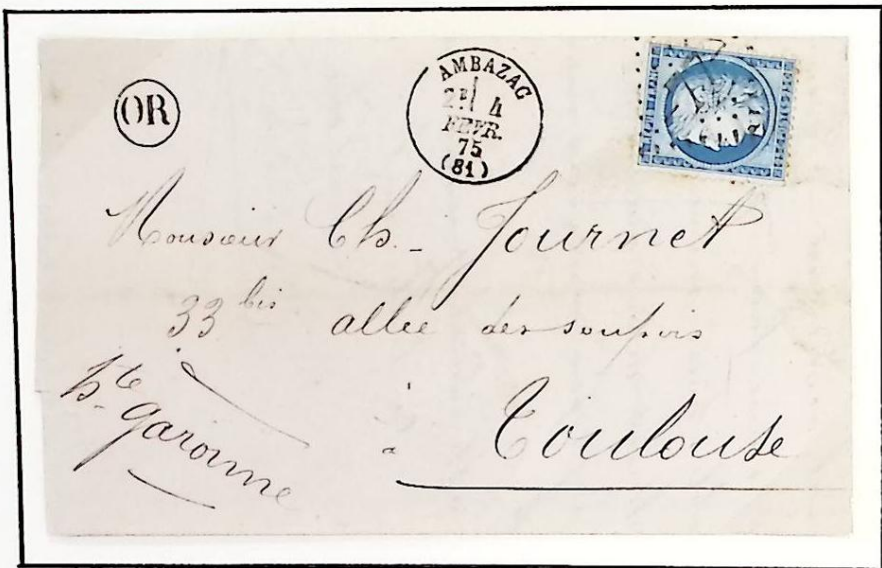 OR
AMBAZAC
2E 4
FEVR.
75
(81)
Monsieur Ch. Journet
33 bis allée des soupirs
à Toulouse
Hte Garonne